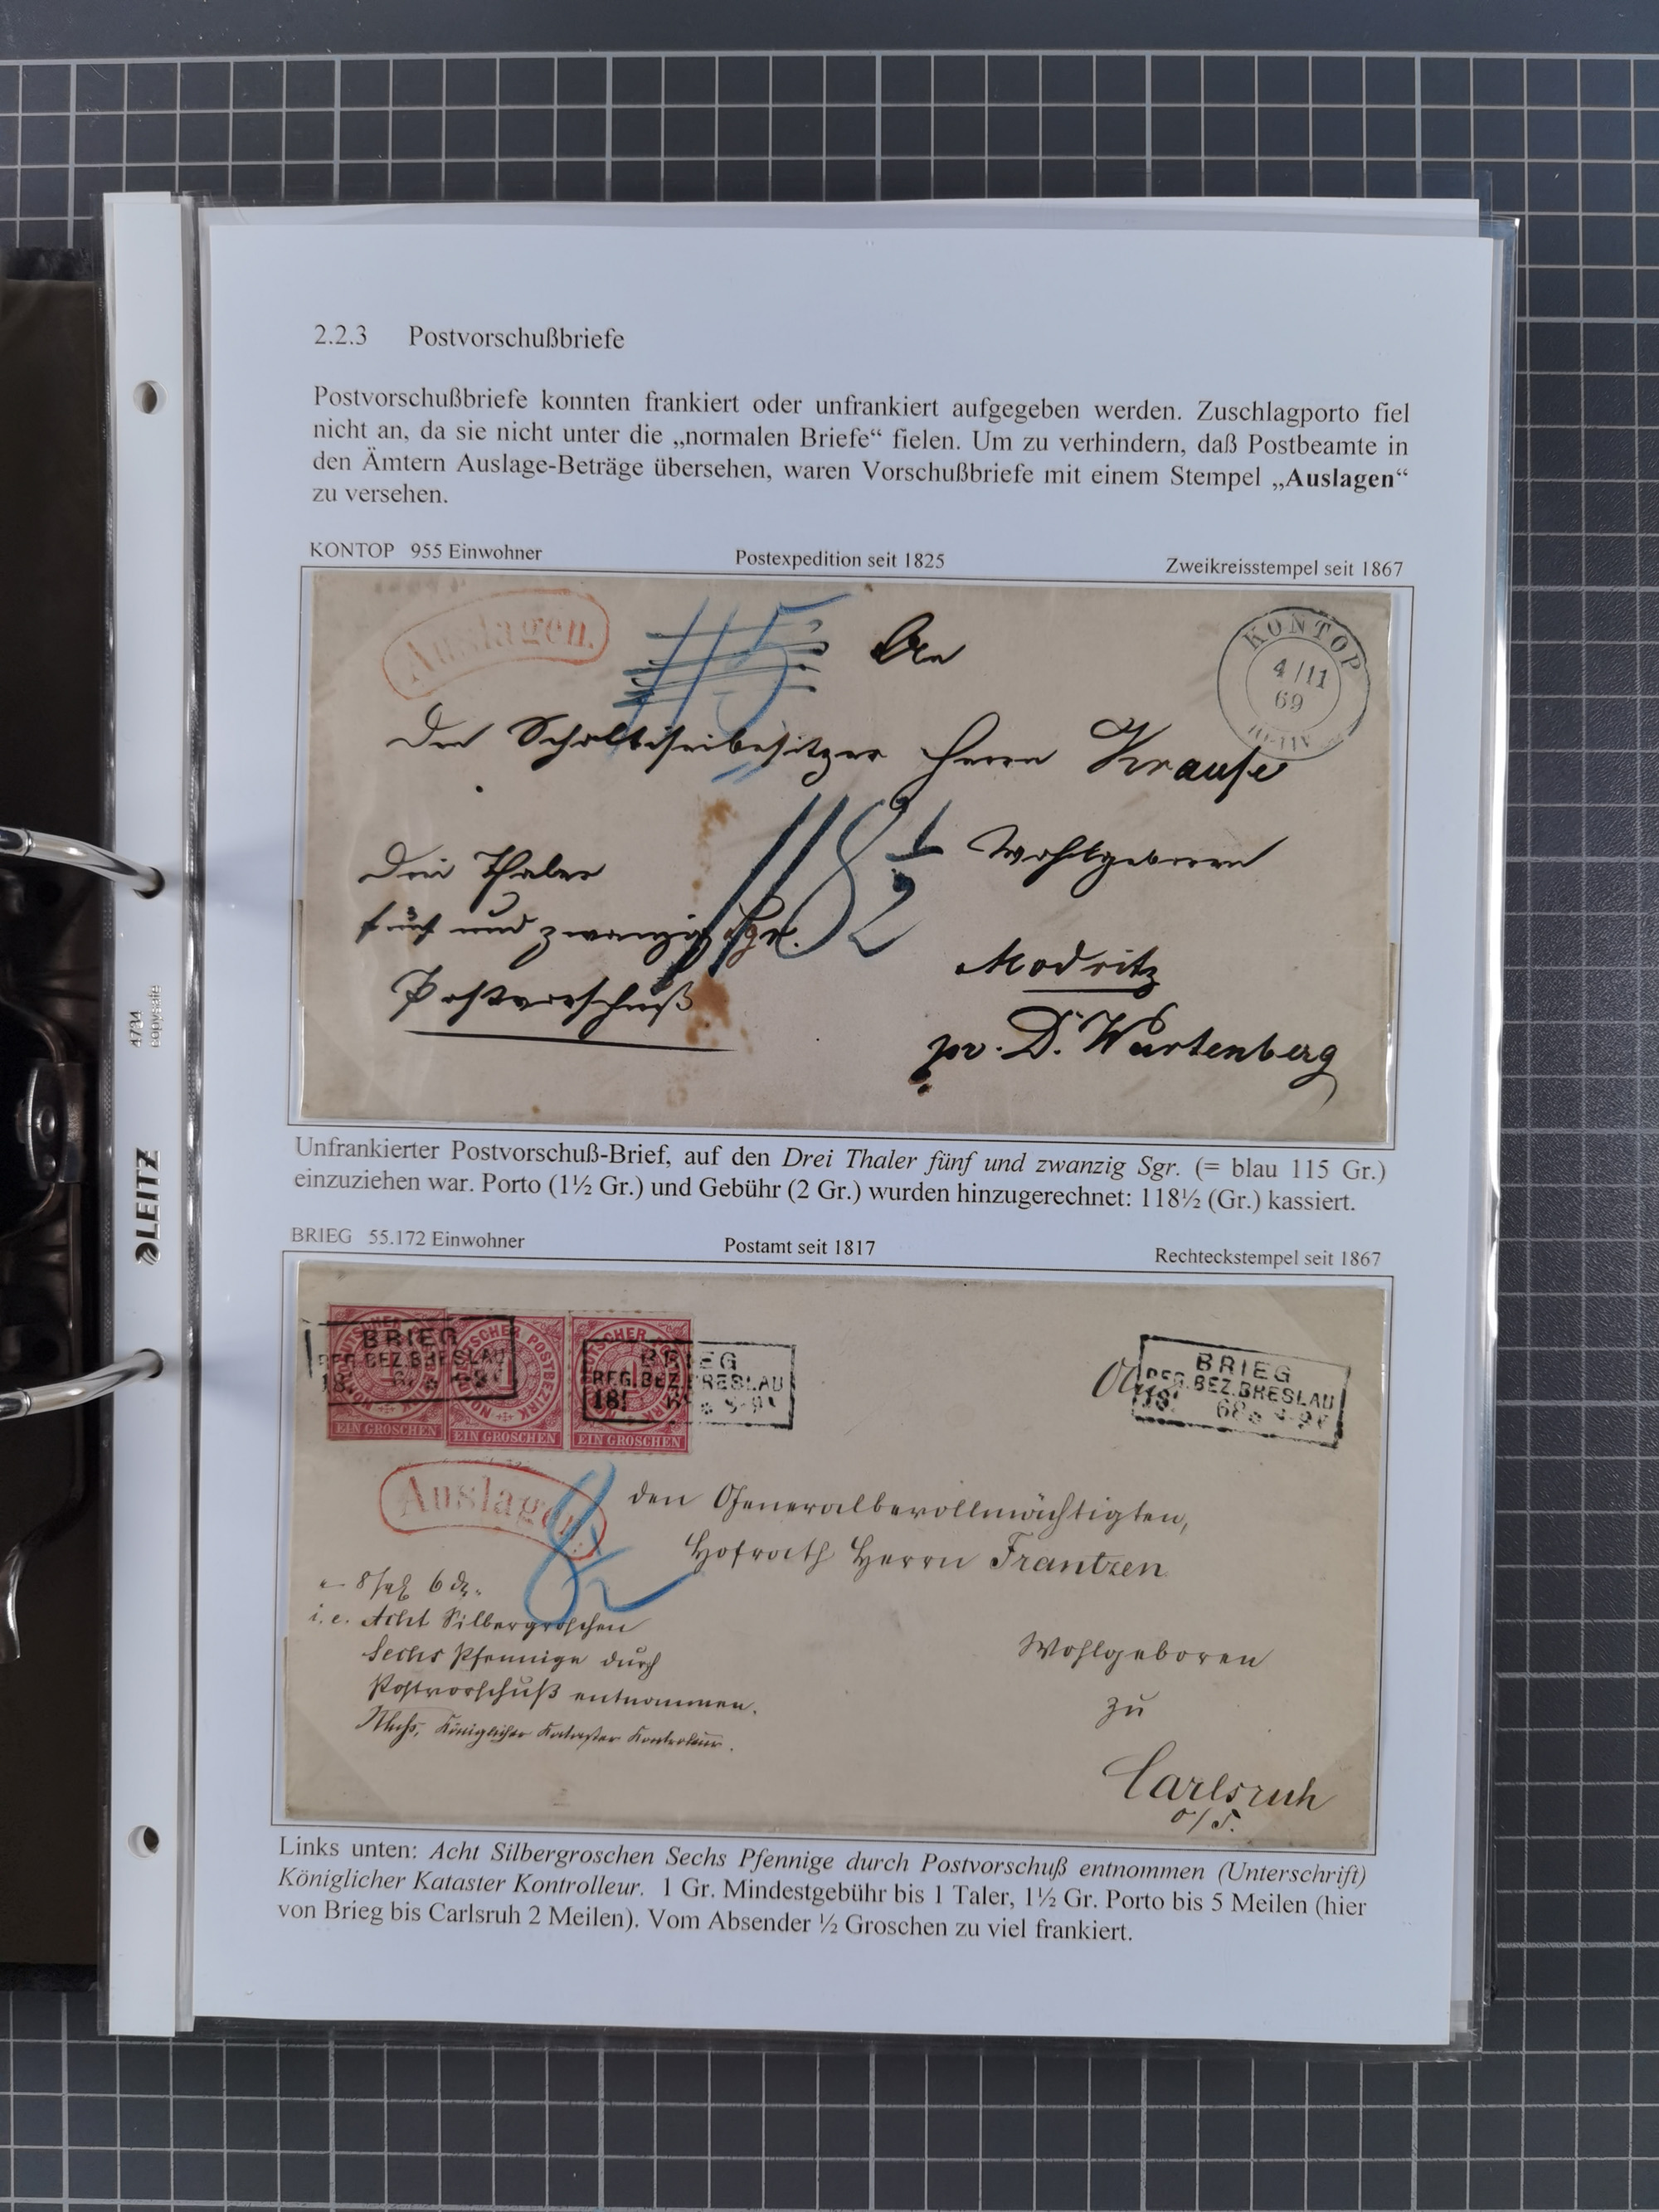 2.2.3 Postvorschußbriefe
Postvorschußbriefe konnten frankiert oder unfrankiert aufgegeben werden. Zuschlagporto fiel
nicht an, da sie nicht unter die „normalen Briefe“ fielen. Um zu verhindern, daß Postbeamte in
den Ämtern Auslage-Beträge übersehen, waren Vorschußbriefe mit einem Stempel „Auslagen“
zu versehen.
KONTOP 955 Einwohner Postexpedition seit 1825 Zweikreisstempel seit 1867
Auslagen.
115
An
KONTOP
4/11
69
Den Scholtiseibesitzer Herrn Krause
118 1/2
Wohlgeboren
Drei Thaler
fünf und zwanzig Sgr.
Postvorschuß
Modritz
pr. D. Wartenberg
Unfrankierter Postvorschuß-Brief, auf den Drei Thaler fünf und zwanzig Sgr. (= blau 115 Gr.)
einzuziehen war. Porto (1½ Gr.) und Gebühr (2 Gr.) wurden hinzugerechnet: 118½ (Gr.) kassiert.
BRIEG 55.172 Einwohner Postamt seit 1817 Rechteckstempel seit 1867
BRIEG
REG.BEZ.BRESLAU
NORDDEUTSCHER POSTBEZIRK
EIN GROSCHEN
EIN GROSCHEN
EIN GROSCHEN
BRIEG
REG.BEZ.BRESLAU
18!
BRIEG
REG.BEZ.BRESLAU
18! 68
An
Auslagen.
8 1/2
den Generalbevollmächtigten,
Hofrath Herrn Frantzen
8 sgl 6 d.
i. e. Acht Silbergroschen
Sechs Pfennige durch
Postvorschuß entnommen.
Königlicher Kataster Kontroleur.
Wohlgeboren
zu
Carlsruh
o/S.
Links unten: Acht Silbergroschen Sechs Pfennige durch Postvorschuß entnommen (Unterschrift)
Königlicher Kataster Kontrolleur. 1 Gr. Mindestgebühr bis 1 Taler, 1½ Gr. Porto bis 5 Meilen (hier
von Brieg bis Carlsruh 2 Meilen). Vom Absender ½ Groschen zu viel frankiert.
4734
copysafe
LEITZ